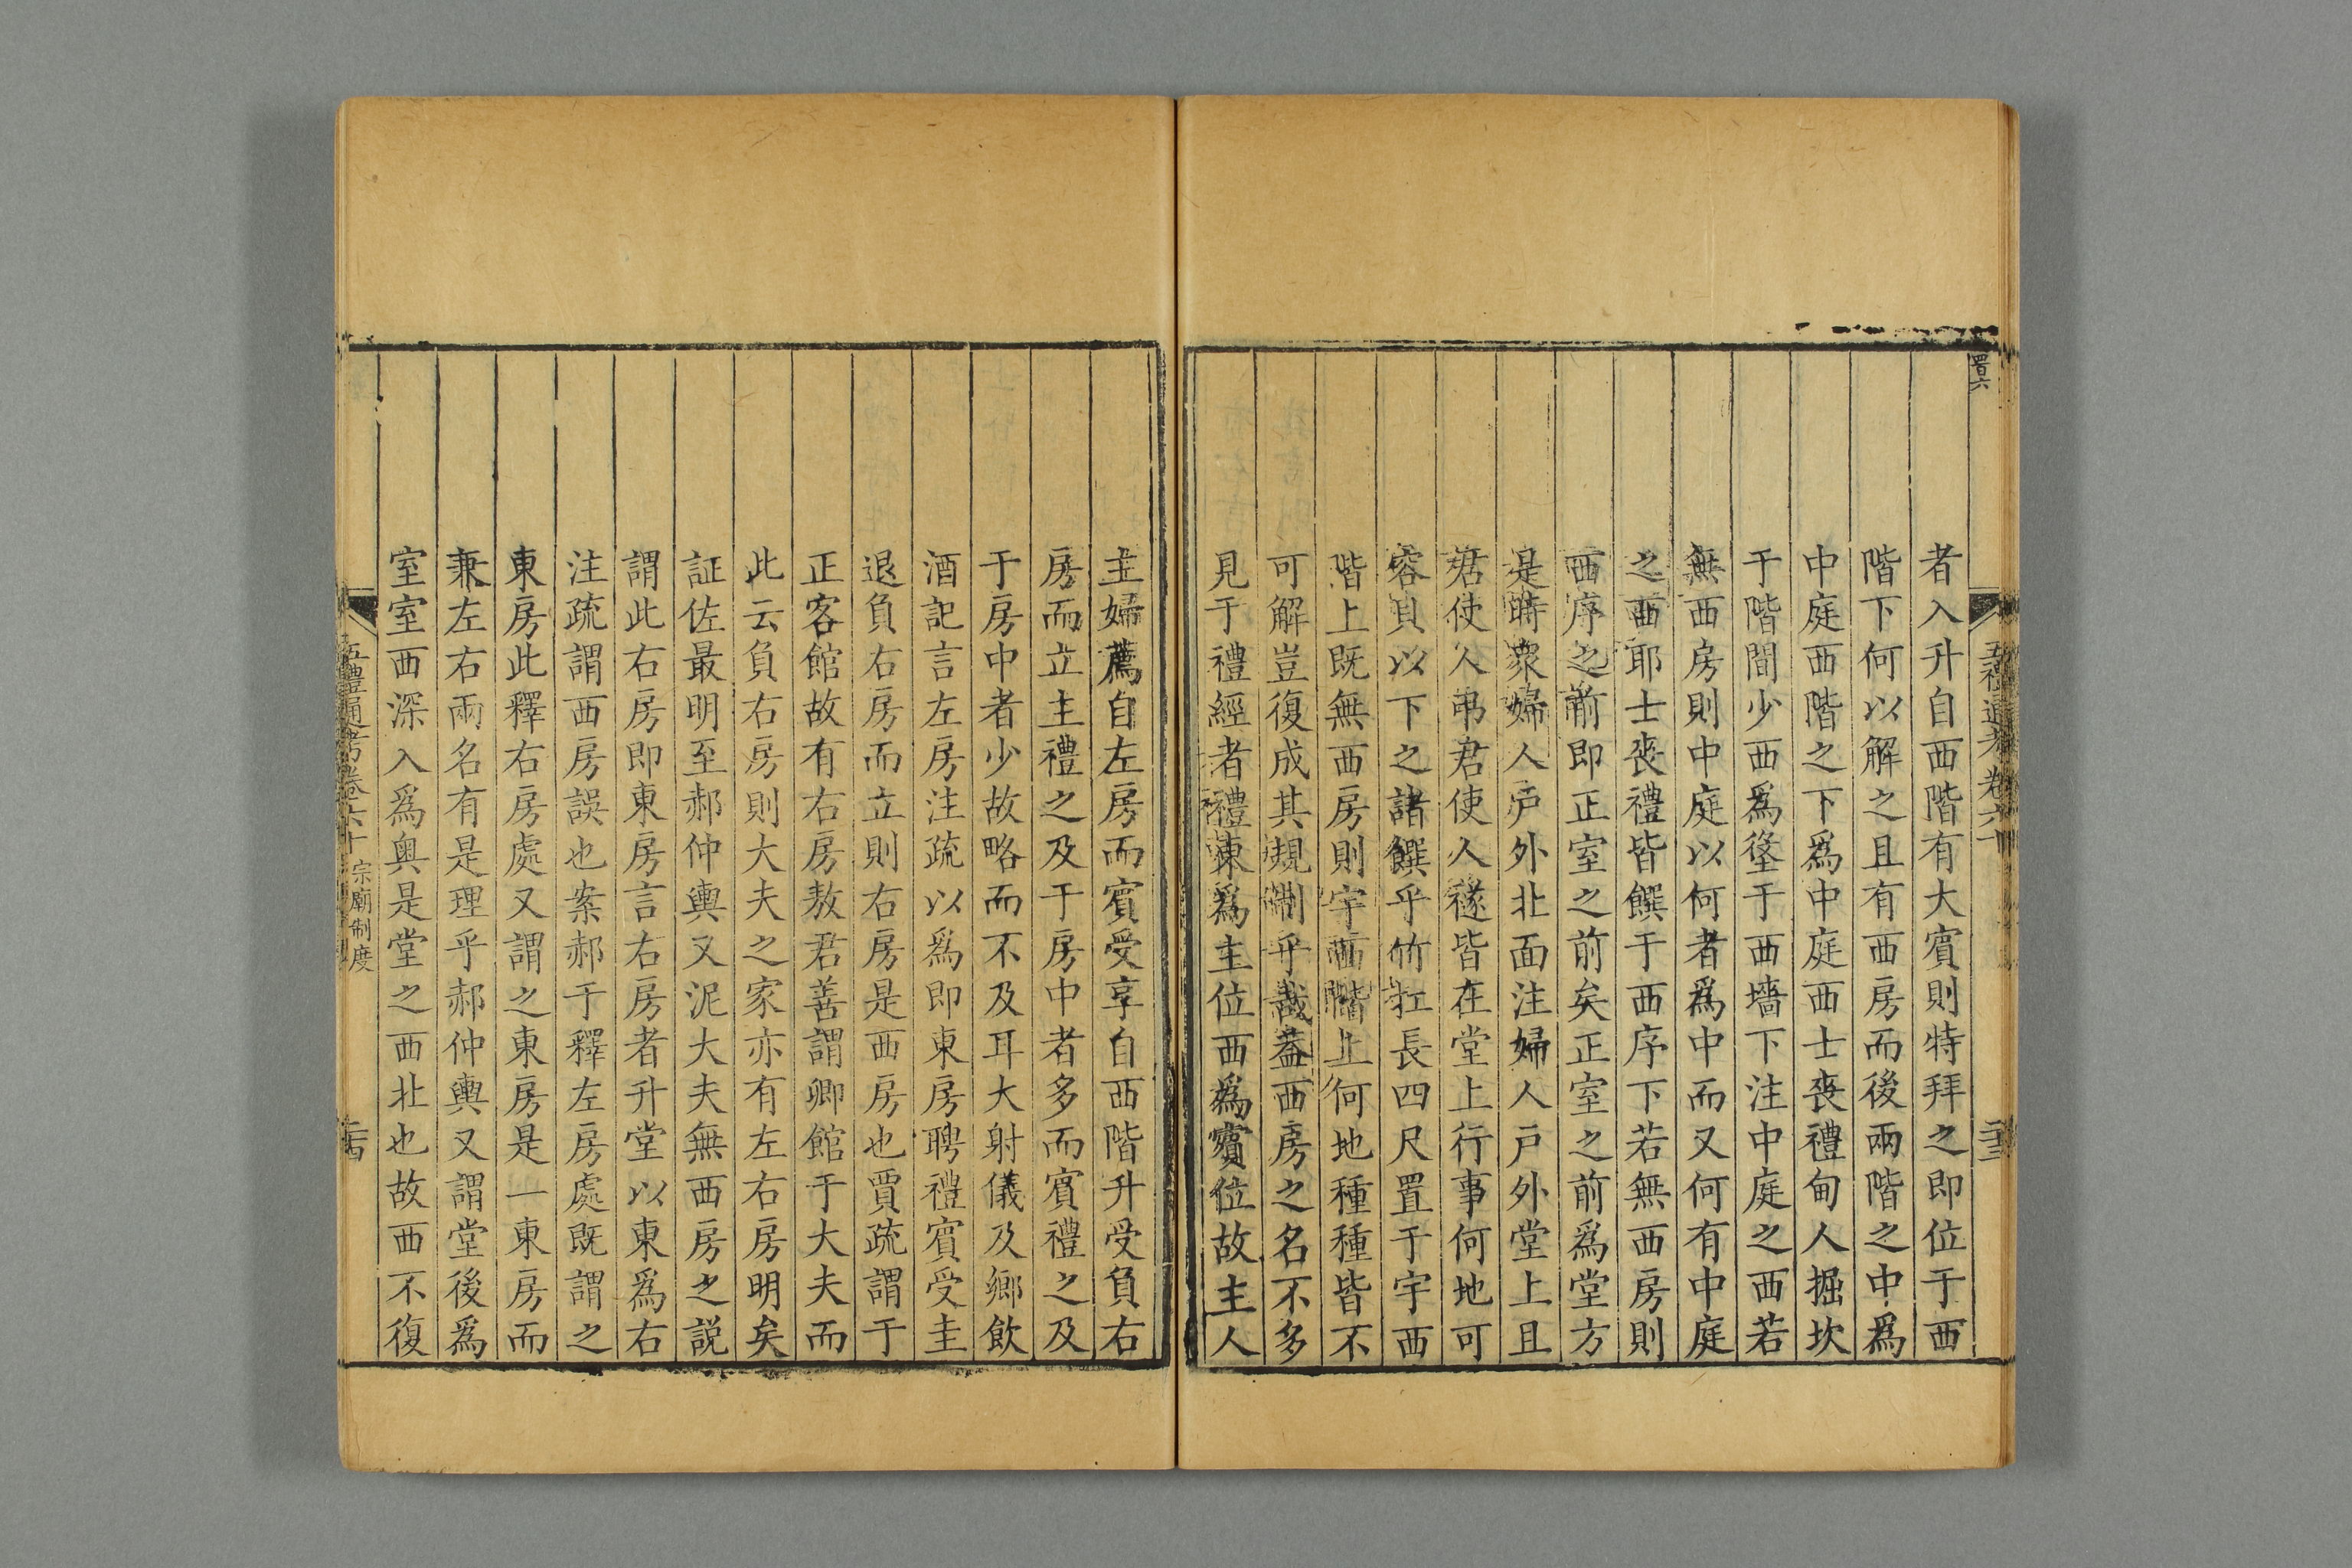 五禮通考卷六十
者入升自西階有大賓則特拜之即位于西
階下何以解之且有西房而後兩階之中爲
中庭西階之下爲中庭西士喪禮甸人掘坎
于階間少西爲垼于西墻下注中庭之西若
無西房則中庭以何者爲中而又何有中庭
之西耶士喪禮皆饌于西序下若無西房則
西序之前即正室之前矣正室之前爲堂方
是時衆婦人戶外北面注婦人戶外堂上且
君使人弔君使人襚皆在堂上行事何地可
容貝以下之諸饌乎竹杠長四尺置于宇西
階上既無西房則宇西階上何地種種皆不
可解豈復成其規制乎哉蓋西房之名不多
見于禮經者禮東爲主位西爲賓位故主人
主婦薦自左房而賓受享自西階升受負右
房而立主禮之及于房中者多而賓禮之及
于房中者少故略而不及耳大射儀及鄉飲
酒記言左房注疏以爲即東房聘禮賓受圭
退負右房而立則右房是西房也賈疏謂于
正客館故有右房敖君善謂卿館于大夫而
此云負右房則大夫之家亦有左右房明矣
証佐最明至郝仲輿又泥大夫無西房之説
謂此右房即東房言右房者升堂以東爲右
注疏謂西房誤也案郝于釋左房處既謂之
東房此釋右房處又謂之東房是一東房而
兼左右兩名有是理乎郝仲輿又謂堂後爲
室室西深入爲奧是堂之西北也故西不復
五禮通考卷六十 宗廟制度